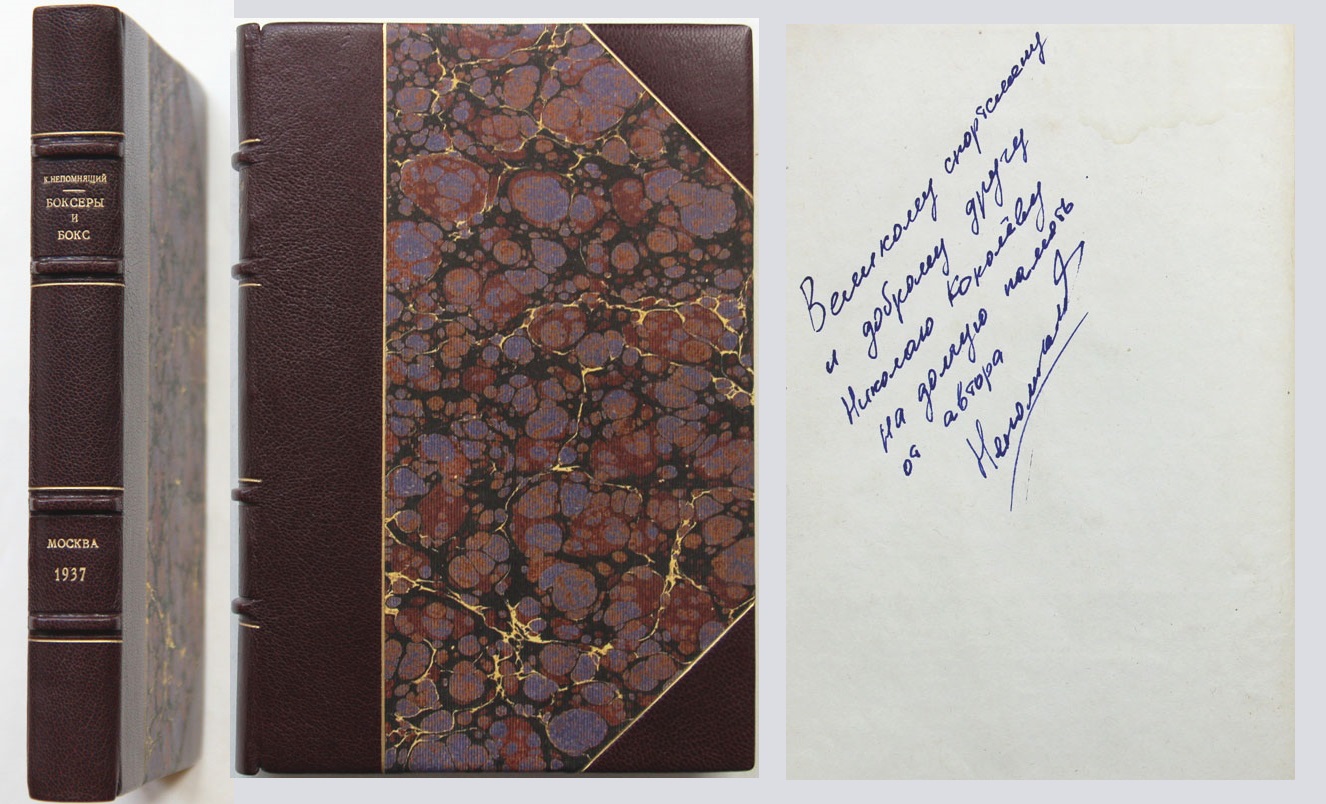 К. НЕПОМНЯЩИЙ
БОКСЕРЫ
И
БОКС
МОСКВА
1937
Великому спортсмену
и доброму другу
Николаю Королёву
на долгую память
от автора